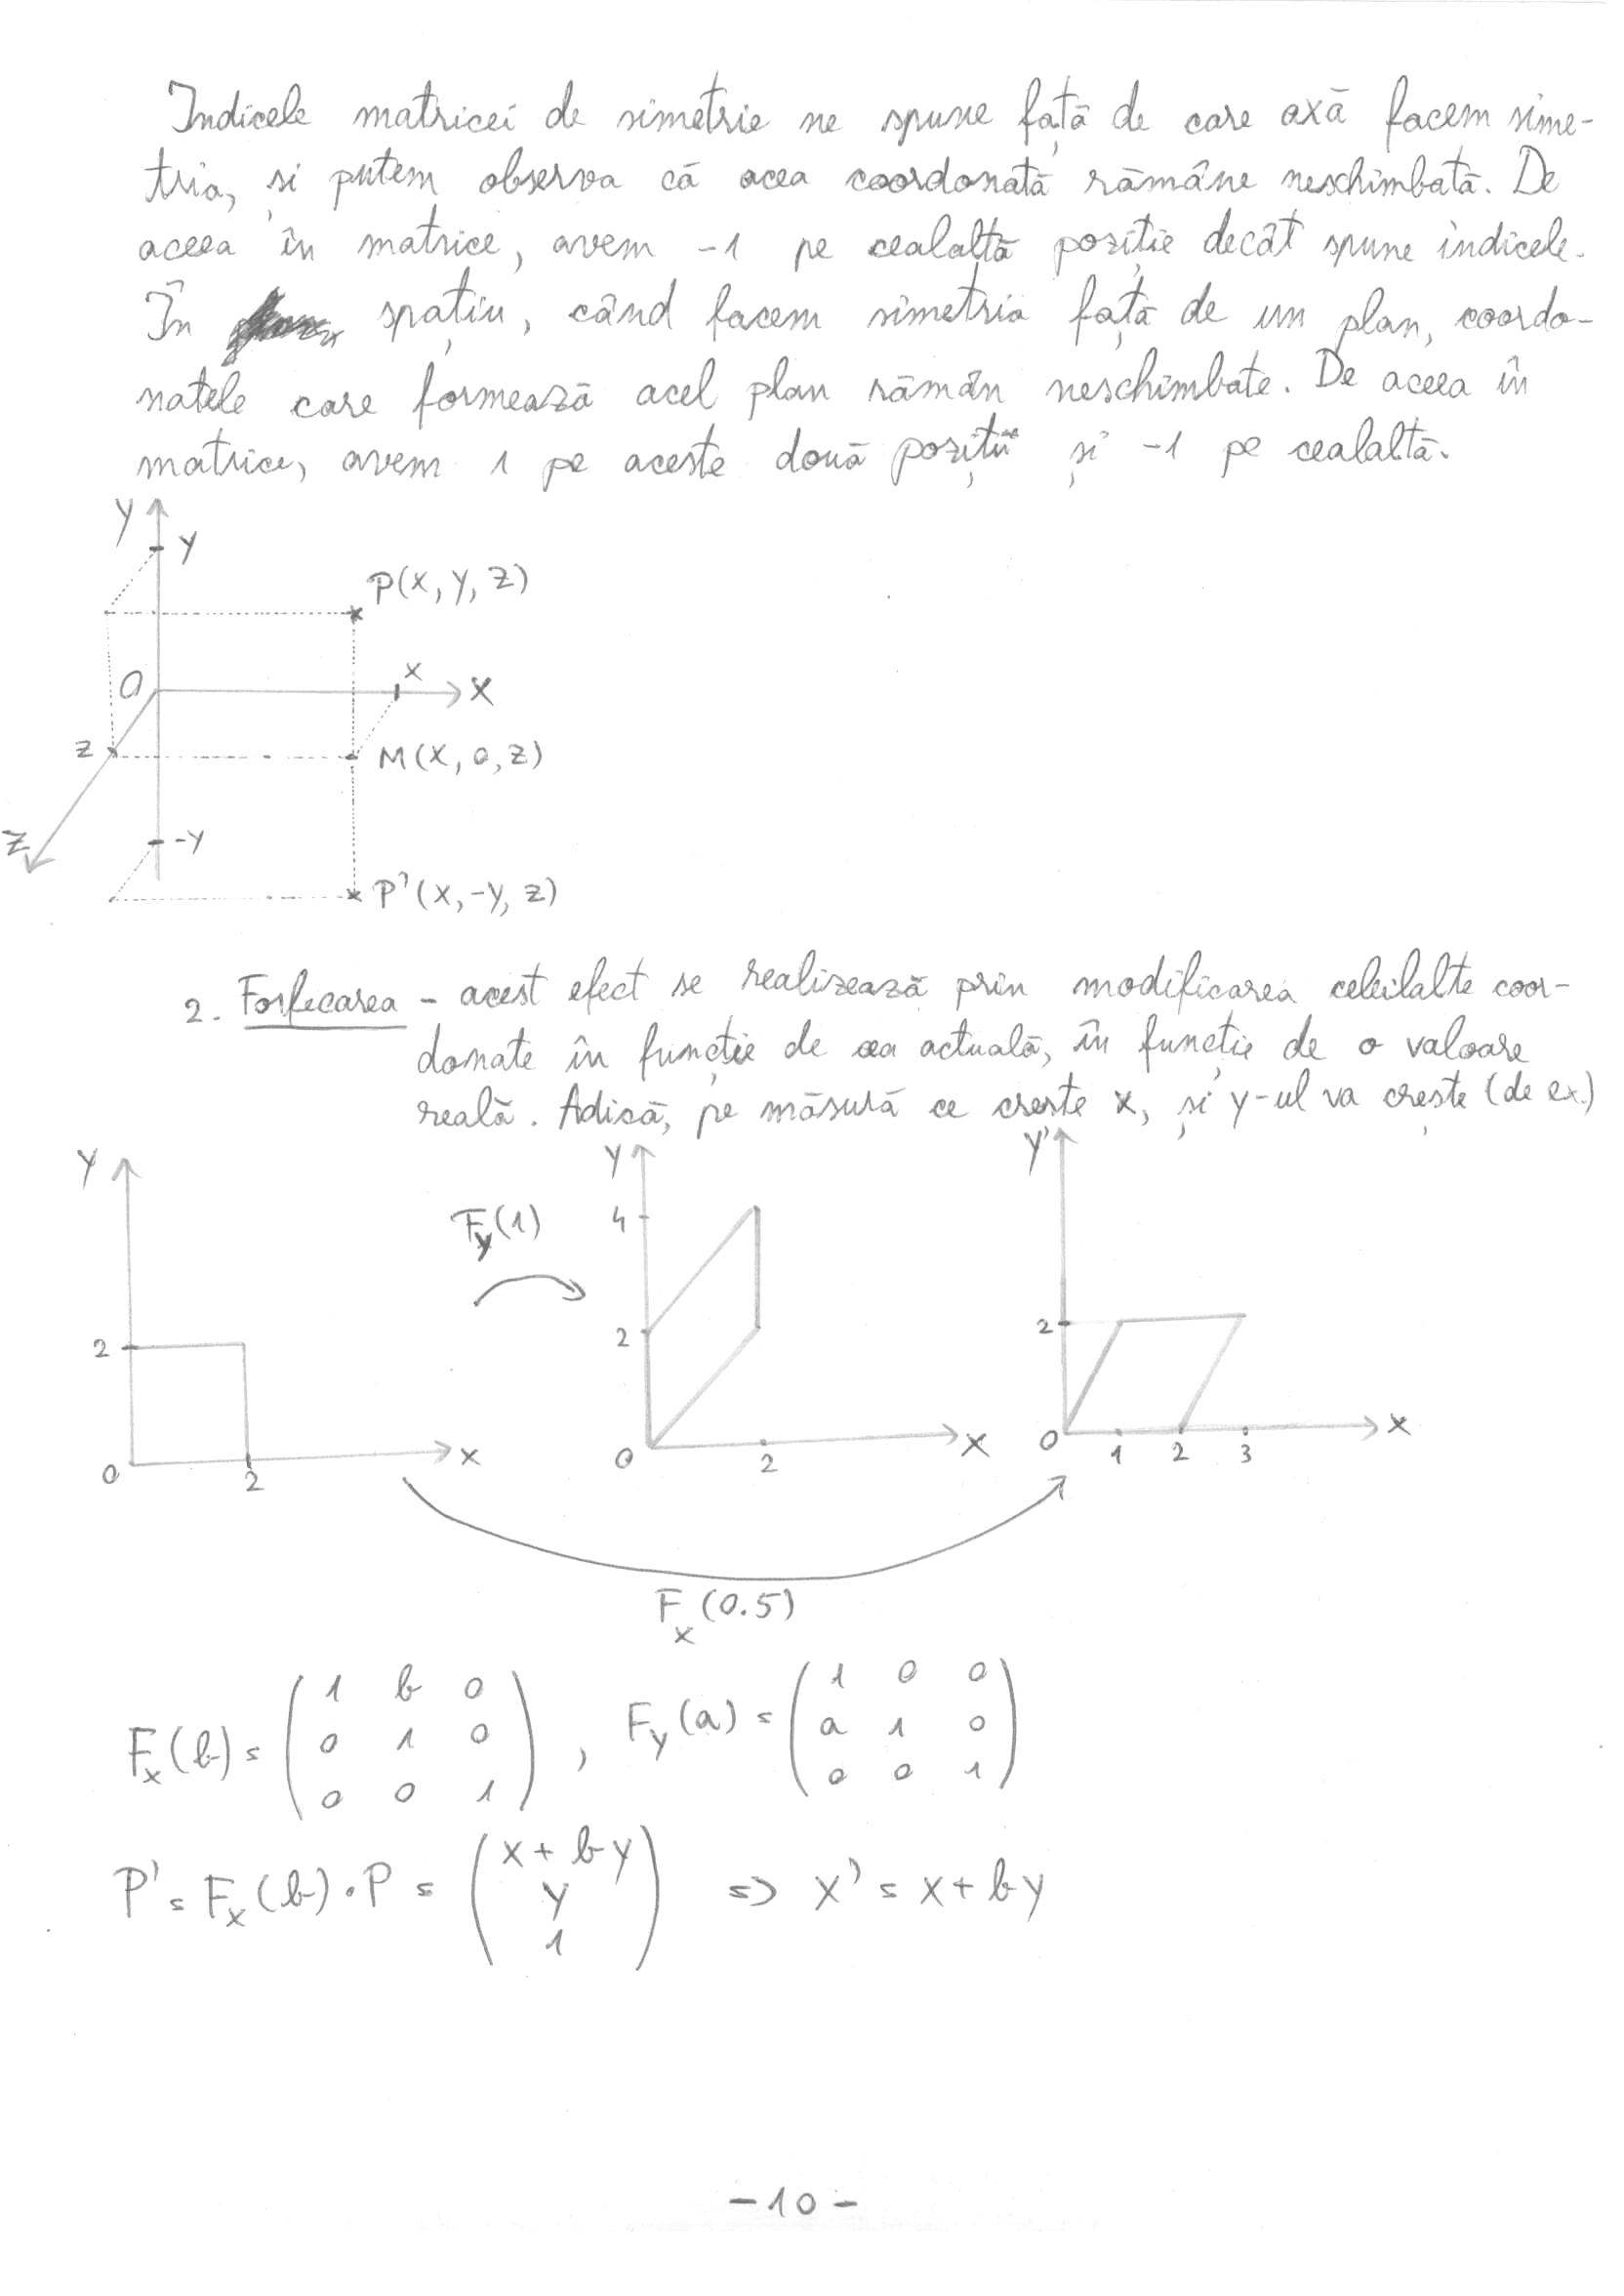 Indicele matricei de simetrie ne spune față de care axă facem sime-
tria, și putem observa că acea coordonată rămâne neschimbată. De
aceea în matrice, avem -1 pe cealaltă poziție decât spune indicele.
În spațiu, când facem simetria față de un plan, coordo-
natele care formează acel plan rămân neschimbate. De aceea în
matrice, avem 1 pe aceste două poziții și -1 pe cealaltă.
Y
Y
P(X, Y, Z)
O
X
X
Z
M(X, 0, Z)
Z
-Y
P'(X, -Y, Z)
2. Forfecarea - acest efect se realizează prin modificarea celeilalte coor-
donate în funcție de cea actuală, în funcție de o valoare
reală. Adică, pe măsură ce crește x, și y-ul va crește (de ex.)
Y
2
0
2
X
F_y(1)
Y
4
2
0
2
X
Y'
2
0
1 2 3
X
F_x(0.5)
F_x(b) = ( 1 b 0
0 1 0
0 0 1 ) , F_y(a) = ( 1 0 0
a 1 0
0 0 1 )
P' = F_x(b) · P = ( x + by
y
1 ) => x' = x + by
- 10 -